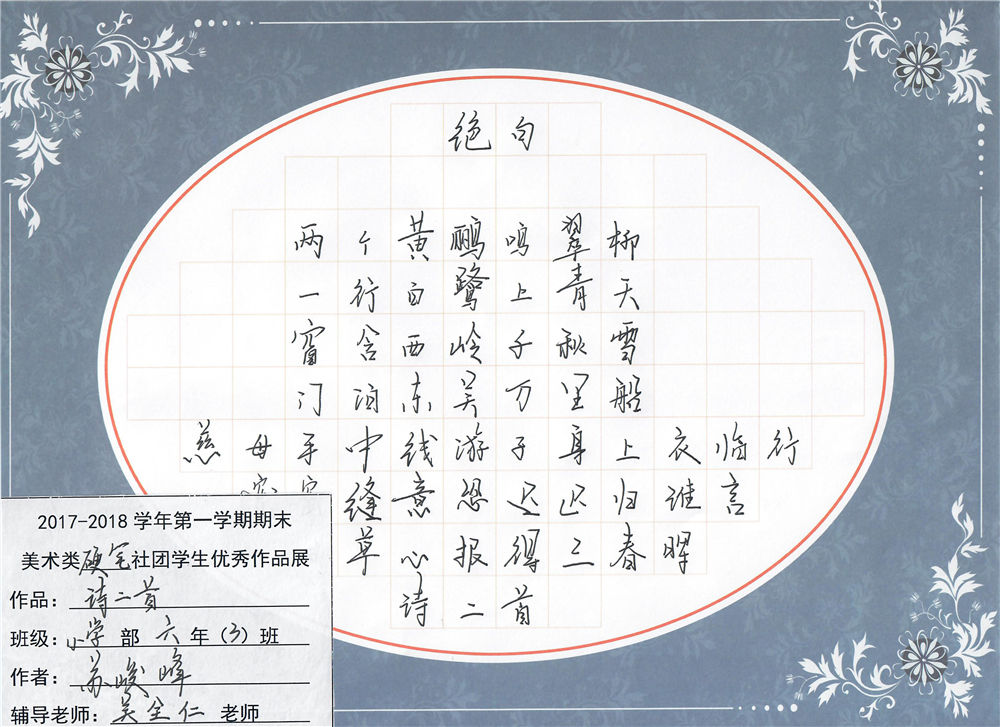 绝句
两个黄鹂鸣翠柳
一行白鹭上青天
窗含西岭千秋雪
门泊东吴万里船
慈母手中线游子身上衣临行
密密缝意恐迟迟归谁言
草心报得三春晖
诗二首
2017-2018 学年第一学期期末
美术类硬笔社团学生优秀作品展
作品：诗二首
班级：小学 部 六 年（3）班
作者：苏峻峰
辅导老师：吴全仁 老师